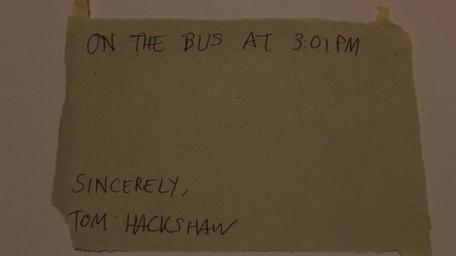 ON THE BUS AT 3:01PM
SINCERELY,
TOM HACKSHAW